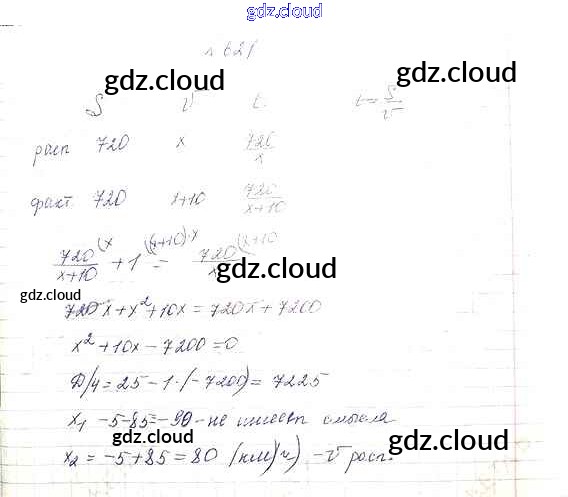 gdz.cloud
№ 621
gdz.cloud gdz.cloud
S v t. t = S/v
расп 720 x 720/x
gdz.cloud
факт. 720 x+10 720/(x+10)
720/(x+10) (x + 1 (x+10)·x = 720/x (x+10
gdz.cloud
gdz.cloud
720x + x² + 10x = 720x + 7200
x² + 10x - 7200 = 0
gdz.cloud
Д/4 = 25 - 1·(-7200) = 7225
gdz.cloud
x₁ -5-85=-90 - не имеет смысла
gdz.cloud
x₂ = -5+85 = 80 (км/ч) - v расп.
gdz.cloud